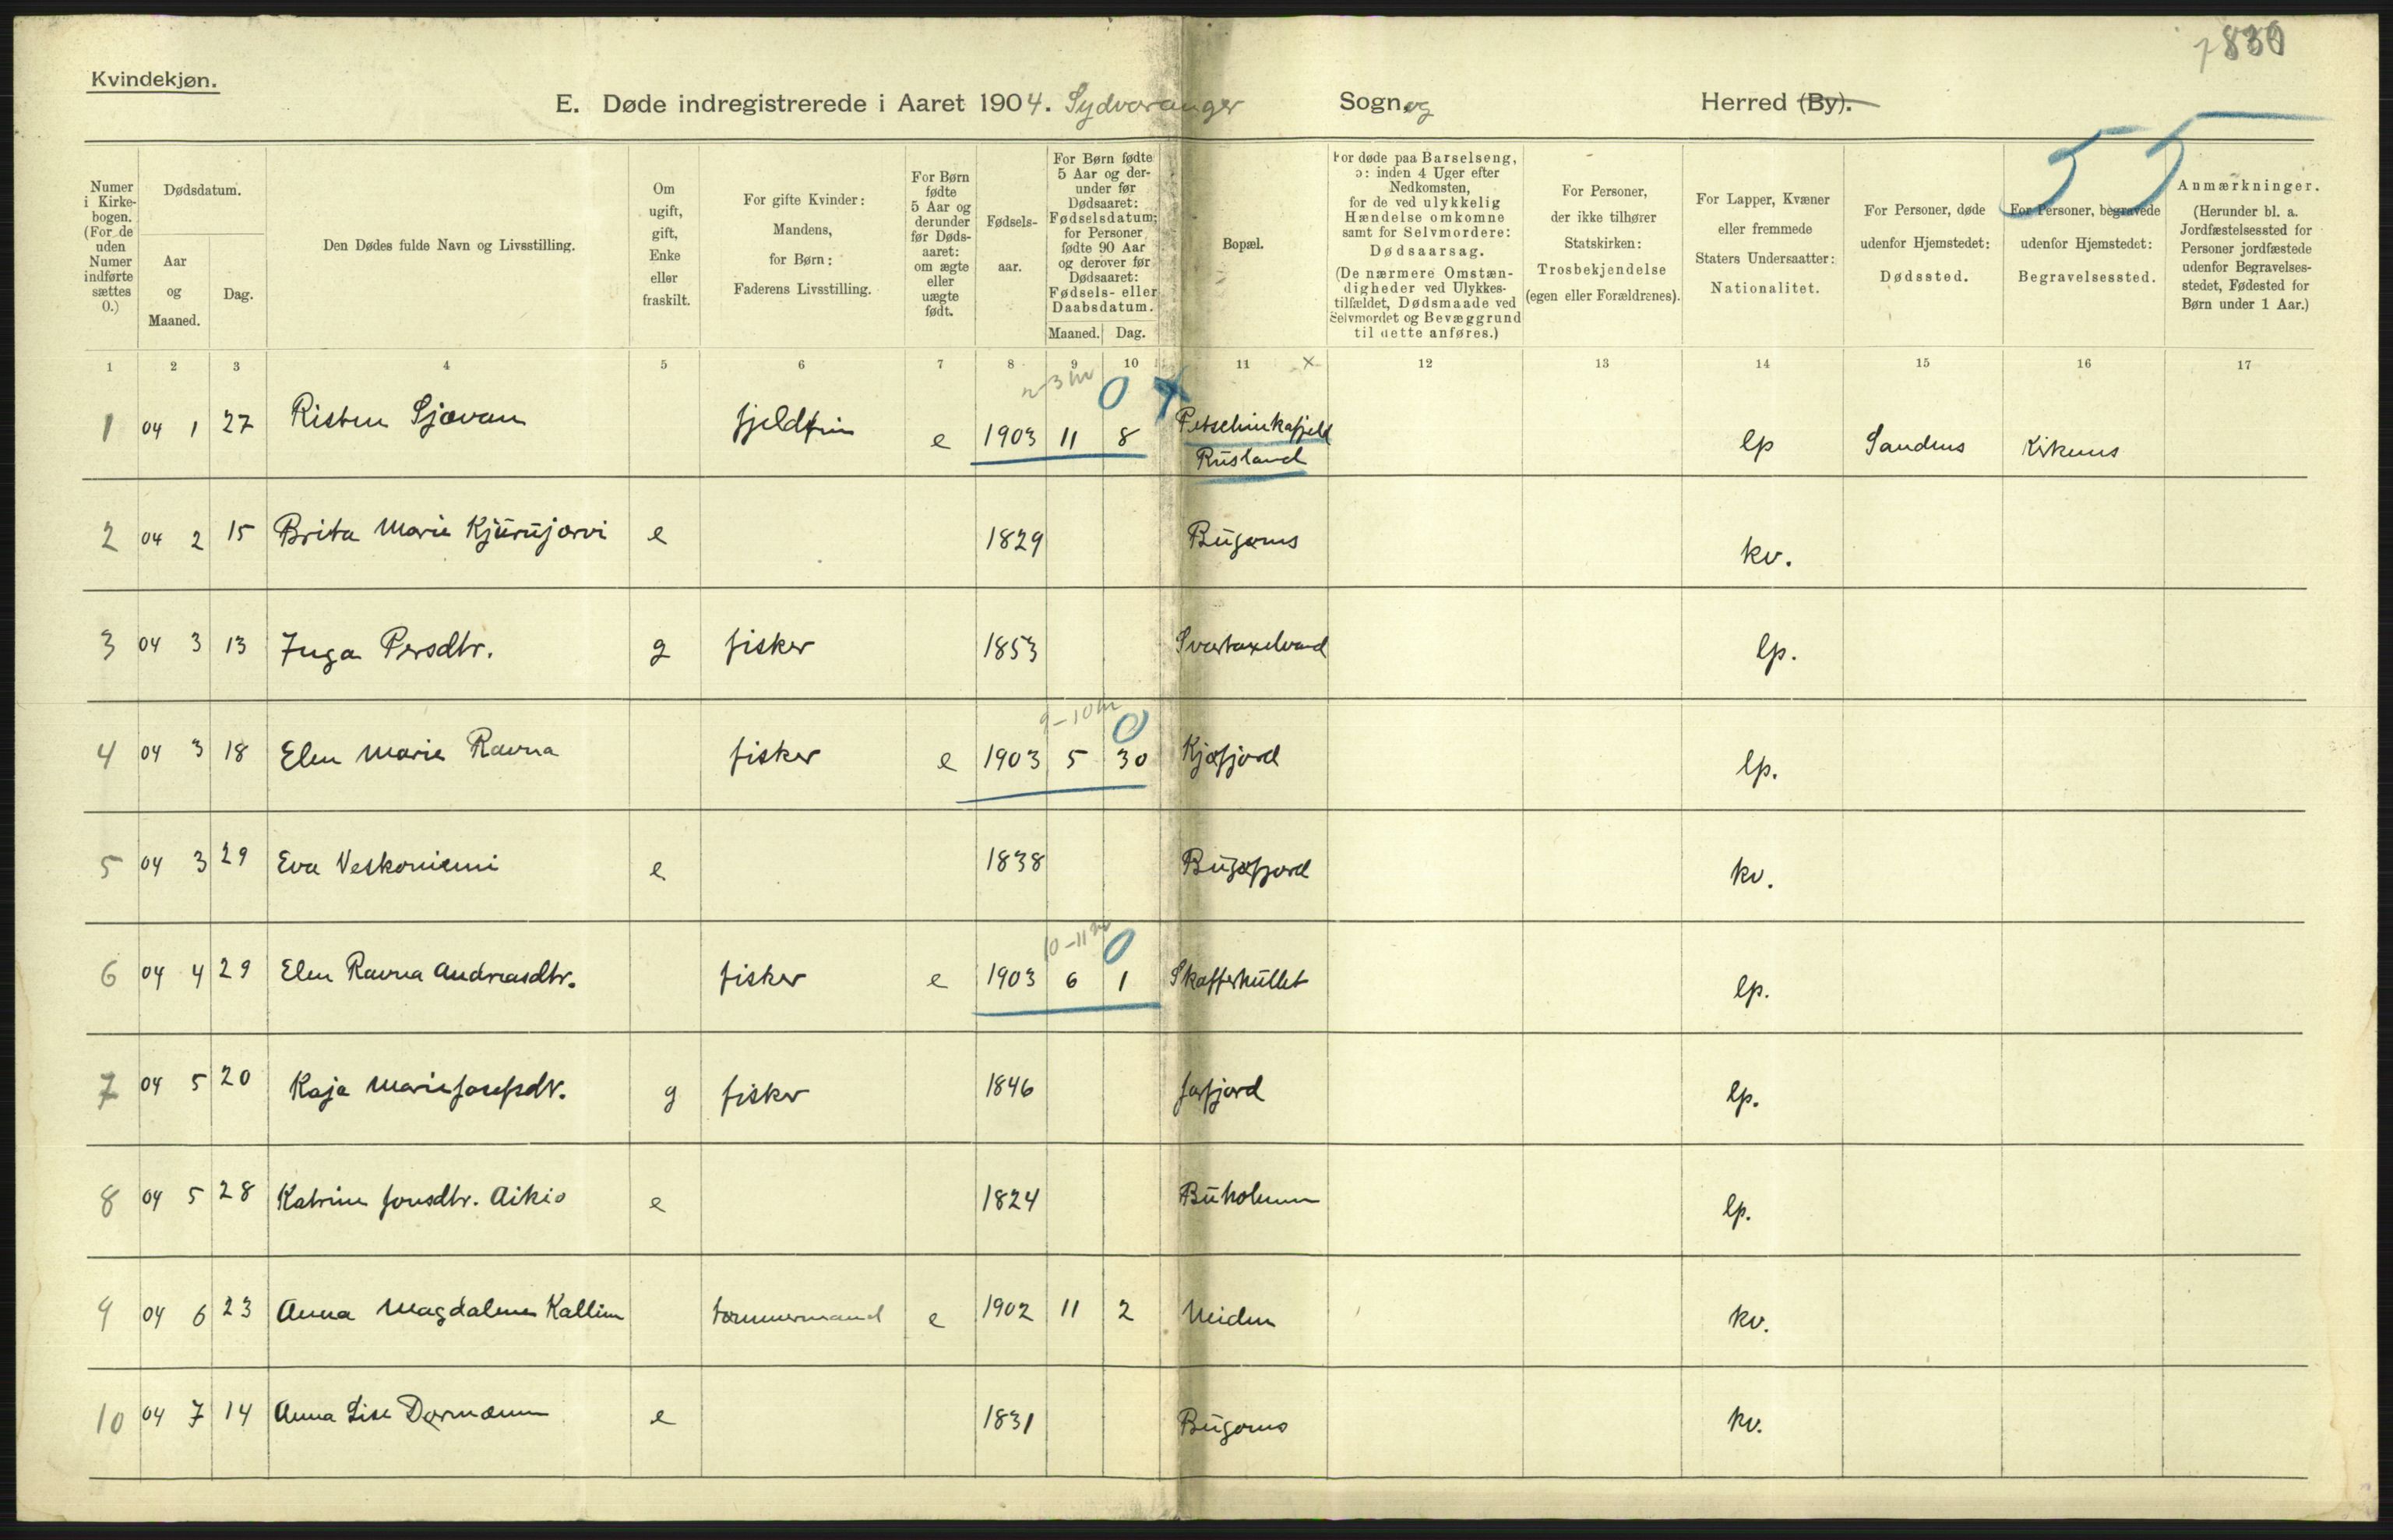 7830
Kvindekjøn.
E. Døde indregistrerede i Aaret 1904. Sydvaranger Sogn og Herred (By).
55
Numer i Kirkebogen. (For de uden Numer indførte sættes 0.)
Dødsdatum.
Aar og Maaned.
Dag.
Den Dødes fulde Navn og Livsstilling.
Om ugift, gift, Enke eller fraskilt.
For gifte Kvinder: Mandens, for Børn: Faderens Livsstilling.
For Børn fødte 5 Aar og derunder før Dødsaaret: om ægte eller uægte født.
Fødselsaar.
For Børn fødte 5 Aar og derunder før Dødsaaret: Fødselsdatum; for Personer fødte 90 Aar og derover før Dødsaaret: Fødsels- eller Daabsdatum.
Maaned. Dag.
Bopæl.
For døde paa Barselseng, ɔ: inden 4 Uger efter Nedkomsten, for de ved ulykkelig Hændelse omkomne samt for Selvmordere: Dødsaarsag. (De nærmere Omstændigheder ved Ulykkestilfældet, Dødsmaade ved Selvmordet og Bevæggrund til dette anføres.)
For Personer, der ikke tilhører Statskirken: Trosbekjendelse (egen eller Forældrenes).
For Lapper, Kvæner eller fremmede Staters Undersaatter: Nationalitet.
For Personer, døde udenfor Hjemstedet: Dødssted.
For Personer, begravede udenfor Hjemstedet: Begravelsessted.
Anmærkninger. (Herunder bl. a. Jordfæstelsessted for Personer jordfæstede udenfor Begravelsesstedet, Fødested for Børn under 1 Aar.)
1 2 3 4 5 6 7 8 9 10 11 x 12 13 14 15 16 17
2-3 m 0
1 04 1 27 Risten Sjavan fjeldfin e 1903 11 8 Petschinkafjeld Rusland lp Sandnes Kirkenes
2 04 2 15 Brita Marie Kjurujarvi e 1829 Bugønes kv.
3 04 3 13 Inga Persdtr. g fisker 1853 Svartaxelvand lp.
9-10 m 0
4 04 3 18 Elen Marie Ravna fisker e 1903 5 30 Kjøfjord lp.
5 04 3 29 Eva Veskoniemi e 1838 Bugøfjord kv.
10-11 m 0
6 04 4 29 Elen Ravna Andreasdtr. fisker e 1903 6 1 Skafferhullet lp.
7 04 5 20 Kaja Marie Josefsdtr. g fisker 1846 Jarfjord lp.
8 04 5 28 Katrine Jonsdtr. Aikio e 1824 Buholmen lp.
9 04 6 23 Anna Magdalene Kallim tømmermand e 1902 11 2 Neiden kv.
10 04 7 14 Anna Lise Dørmænen e 1831 Bugønes kv.